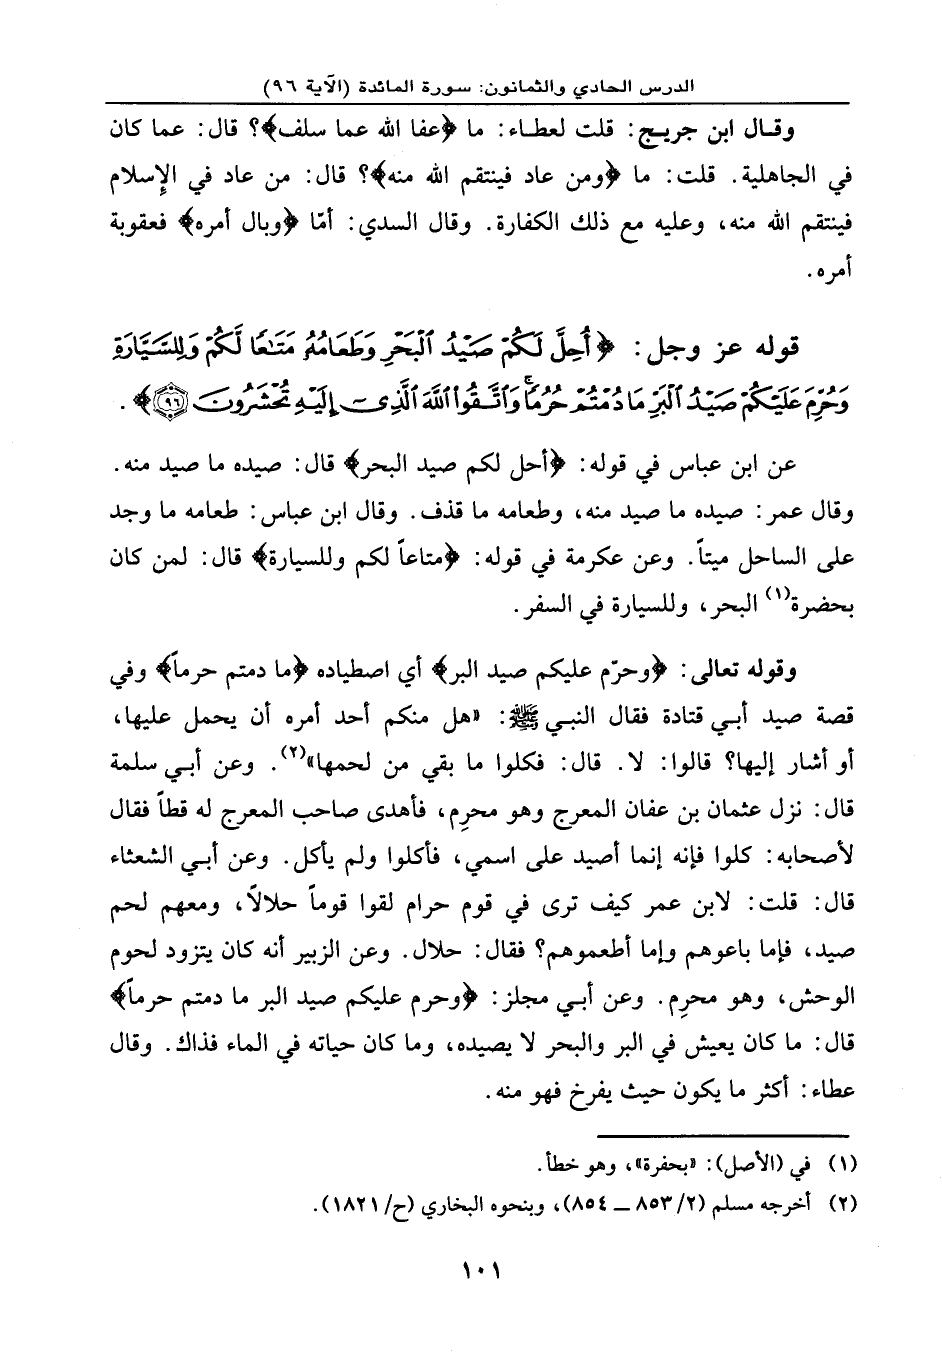 الدرس الحادي والثمانون: سورة المائدة (الآية ٩٦)
وقال ابن جريج: قلت لعطاء: ما ﴿عفا الله عما سلف﴾؟ قال: عما كان
في الجاهلية. قلت: ما ﴿ومن عاد فينتقم الله منه﴾؟ قال: من عاد في الإسلام
فينتقم الله منه، وعليه مع ذلك الكفارة. وقال السدي: أمّا ﴿وبال أمره﴾ فعقوبة
أمره.
قوله عز وجل: ﴿أُحِلَّ لَكُمْ صَيْدُ ٱلْبَحْرِ وَطَعَامُهُۥ مَتَٰعًا لَّكُمْ وَلِلسَّيَّارَةِ
وَحُرِّمَ عَلَيْكُمْ صَيْدُ ٱلْبَرِّ مَا دُمْتُمْ حُرُمًا ۗ وَٱتَّقُوا۟ ٱللَّهَ ٱلَّذِىٓ إِلَيْهِ تُحْشَرُونَ ٩٦﴾.
عن ابن عباس في قوله: ﴿أحل لكم صيد البحر﴾ قال: صيده ما صيد منه.
وقال عمر: صيده ما صيد منه، وطعامه ما قذف. وقال ابن عباس: طعامه ما وجد
على الساحل ميتاً. وعن عكرمة في قوله: ﴿متاعاً لكم وللسيارة﴾ قال: لمن كان
بحضرة(١) البحر، وللسيارة في السفر.
وقوله تعالى: ﴿وحرّم عليكم صيد البر﴾ أي اصطياده ﴿ما دمتم حرماً﴾ وفي
قصة صيد أبي قتادة فقال النبي ﷺ: «هل منكم أحد أمره أن يحمل عليها،
أو أشار إليها؟ قالوا: لا. قال: فكلوا ما بقي من لحمها»(٢). وعن أبي سلمة
قال: نزل عثمان بن عفان المعرج وهو محرِم، فأهدى صاحب المعرج له قطاً فقال
لأصحابه: كلوا فإنه إنما أصيد على اسمي، فأكلوا ولم يأكل. وعن أبي الشعثاء
قال: قلت: لابن عمر كيف ترى في قوم حرام لقوا قوماً حلالاً، ومعهم لحم
صيد، فإما باعوهم وإما أطعموهم؟ فقال: حلال. وعن الزبير أنه كان يتزود لحوم
الوحش، وهو محرِم. وعن أبي مجلز: ﴿وحرم عليكم صيد البر ما دمتم حرماً﴾
قال: ما كان يعيش في البر والبحر لا يصيده، وما كان حياته في الماء فذاك. وقال
عطاء: أكثر ما يكون حيث يفرخ فهو منه.
(١) في (الأصل): «بحفرة»، وهو خطأ.
(٢) أخرجه مسلم (٢/ ٨٥٣ ــ ٨٥٤)، وبنحوه البخاري (ح/ ١٨٢١).
١٠١